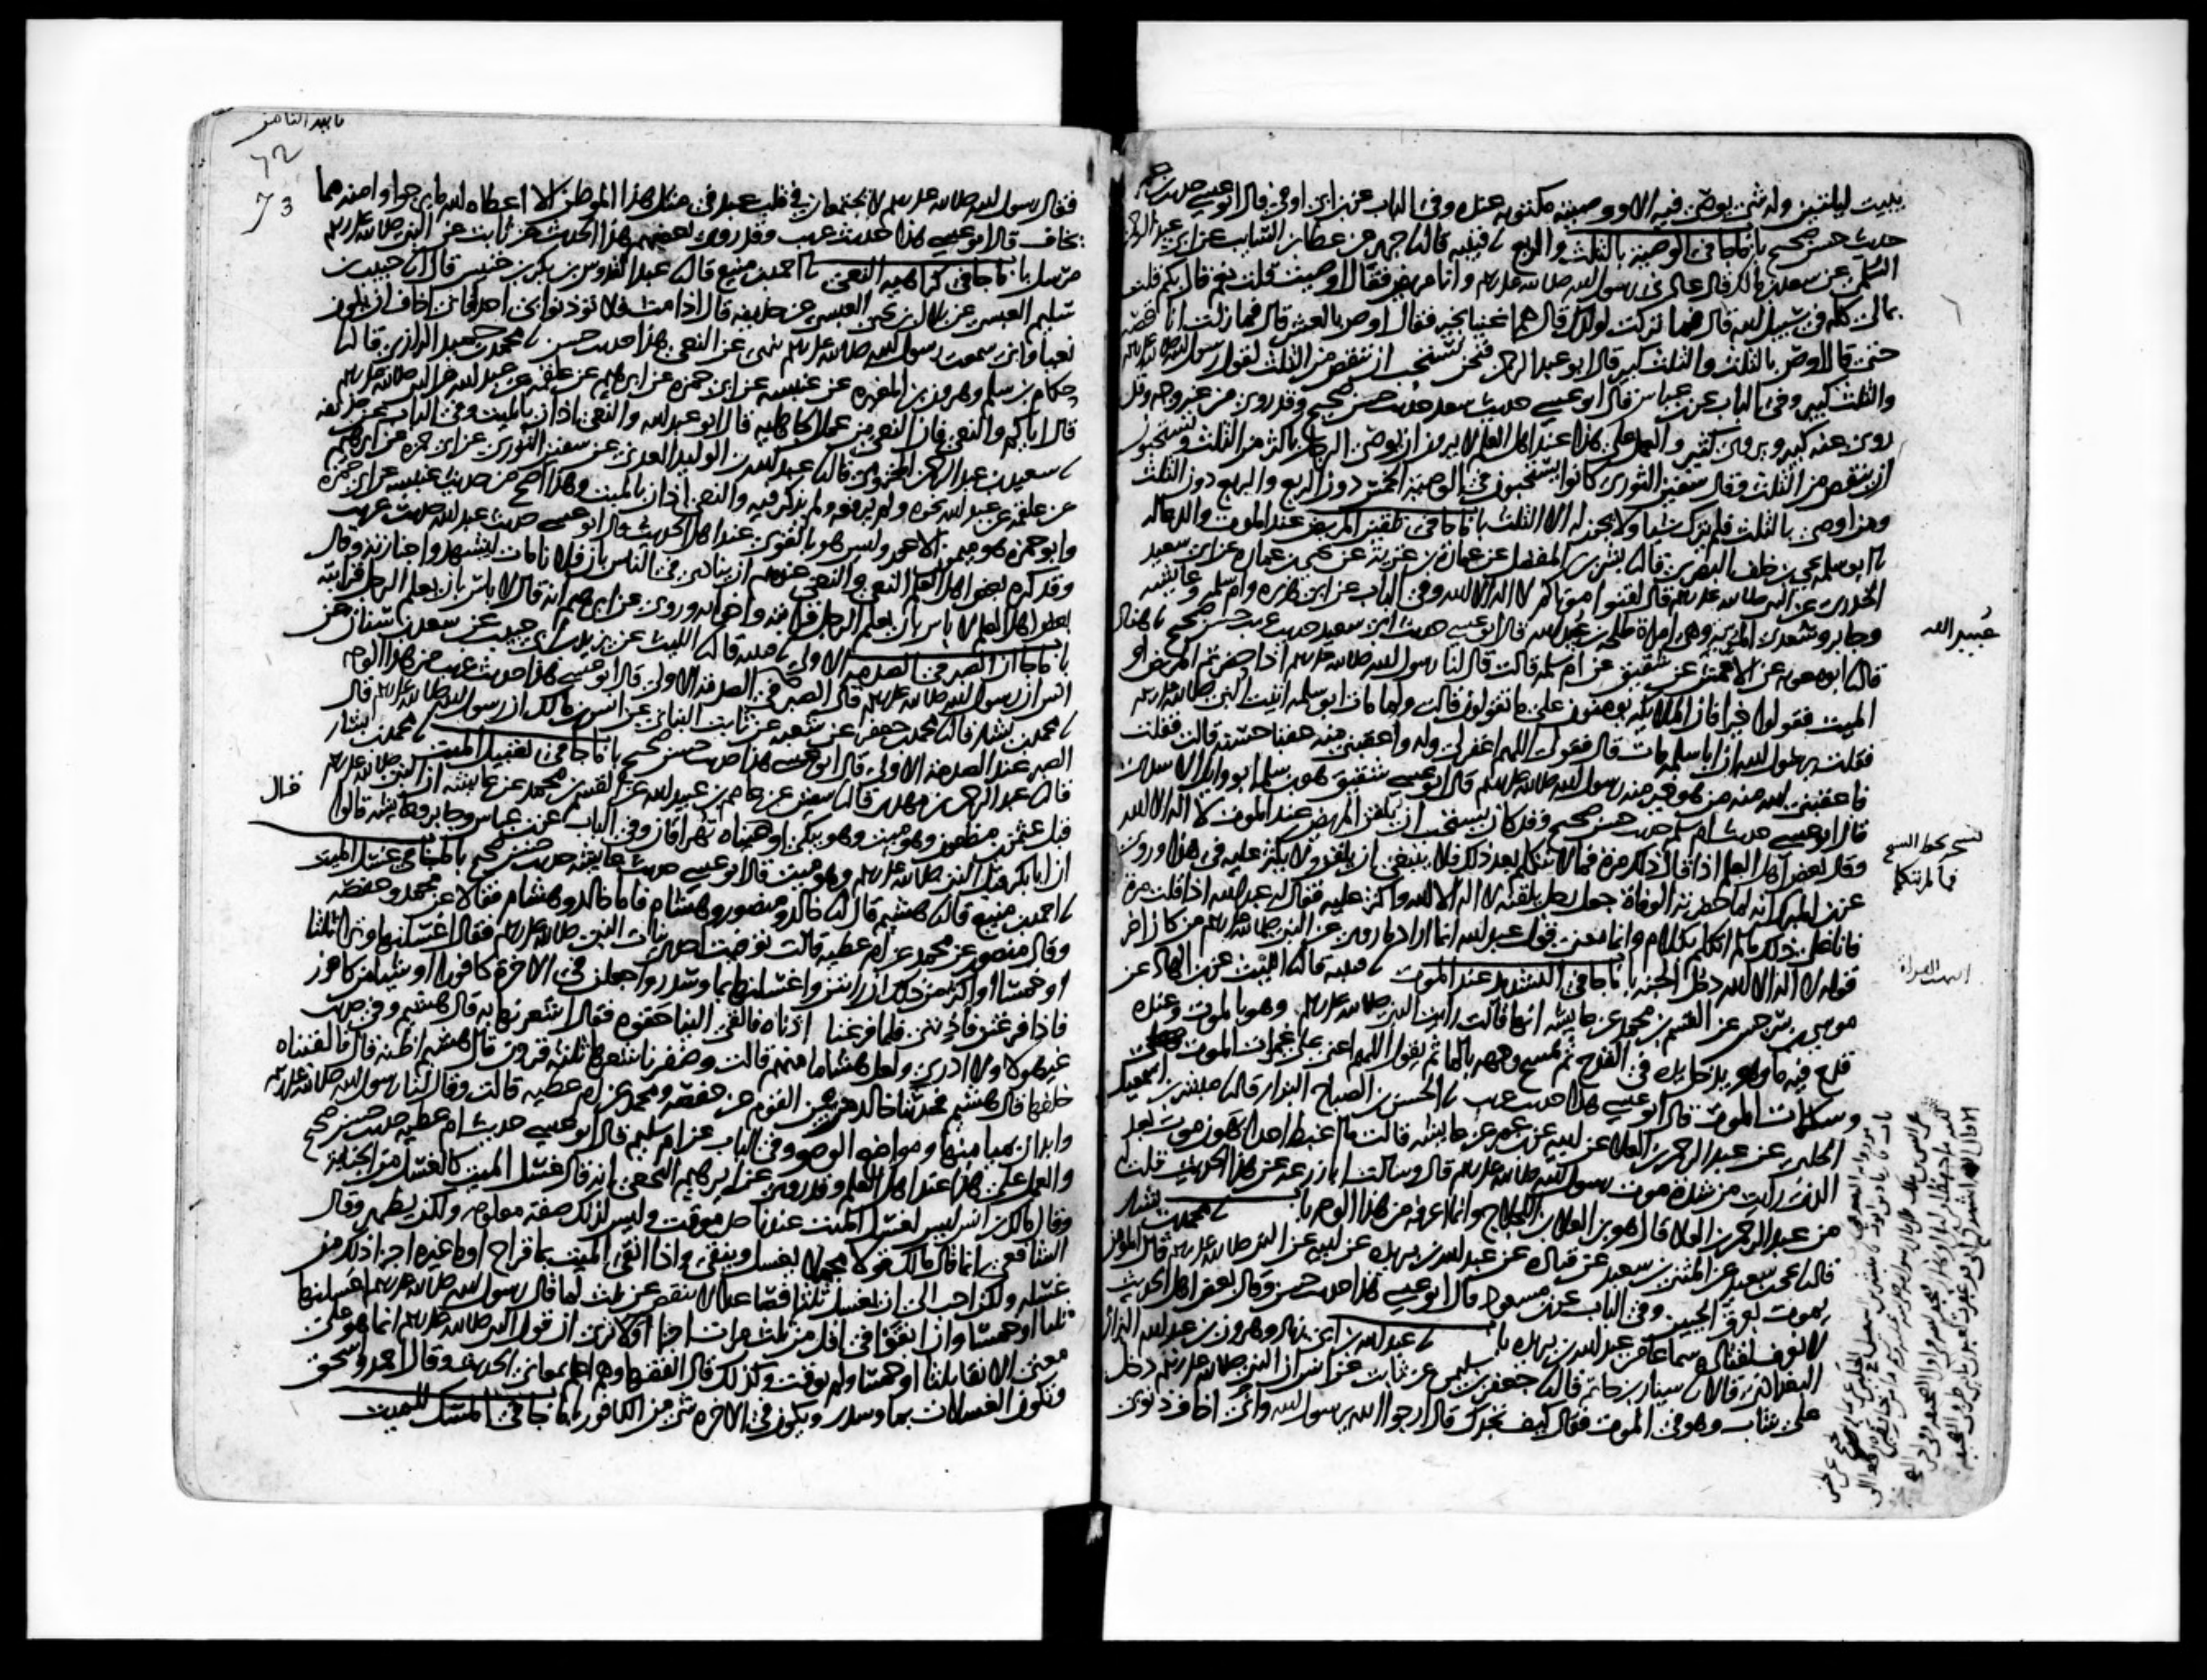 يبيت ليلتين وله شئ يوصي فيه الا ووصيته مكتوبة عنده وفي الباب عن ابن اوفى قال ابو عيسى حديث
حديث حسن صحيح باب ما جا في الوصية بالثلث والربع نا قتيبة قال نا جرير عن عطا بن السايب عن ابي عبد الرحمن
السلمي عن سعد بن مالك قال عادني رسول الله صلى الله عليه وسلم وانا مريض فقال اوصيت قلت نعم قال بكم قلت
بمالي كله في سبيل الله قال فما تركت لولدك قال هم اغنيا بخير فقال اوص بالعشر قال فما زلت اناقصه
حتى قال اوص بالثلث والثلث كبير قال ابو عبد الرحمن فنحن نستحب ان ينقص من الثلث لقول رسول الله صلى الله عليه وسلم
والثلث كبير وفي الباب عن ابن عباس قال ابو عيسى حديث سعد حديث حسن صحيح وقد روي من غير وجه وقد
روي عنه كبير ويروى كثير والعمل على هذا عند اهل العلم لا يرون ان يوصي الرجل باكثر من الثلث ويستحبون
ان ينقص من الثلث وقال سفين الثوري كانوا يستحبون في الوصية الخمس دون الربع والربع دون الثلث
ومن اوصى بالثلث فلم يترك شيا ولا يجوز له الا الثلث باب ما جا في تلقين المريض عند الموت والدعا له
نا ابو سلمة يحيى بن خلف البصري قال نا بشر بن المفضل عن عمارة بن غزية عن يحيى بن عمارة عن ابي سعيد
الخدري عن النبي صلى الله عليه وسلم قال لقنوا موتاكم لا اله الا الله وفي الباب عن ابي هريرة وام سلمة وعايشة
وجابر وسعدى المرية وهي امراة طلحة بن عبيد الله قال ابو عيسى حديث ابي سعيد حديث غريب حسن صحيح نا هناد
قال نا ابو معوية عن الاعمش عن شقيق عن ام سلمة قالت قال لنا رسول الله صلى الله عليه وسلم اذا حضرتم المريض او
الميت فقولوا خيرا فان الملايكة يومنون على ما تقولون قالت ولما مات ابو سلمة اتيت النبي صلى الله عليه وسلم
فقلت يرسول الله ان ابا سلمة مات قال فقولي اللهم اغفر لي وله واعقبني منه عقبا حسنة قالت فقلت
فاعقبني الله منه من هو خير منه رسول الله صلى الله عليه وسلم قال ابو عيسى شقيق هو بن سلمة ابو وايل الاسدي
قال ابو عيسى حديث ام سلمة حديث حسن صحيح وقد كان يستحب ان يلقن المريض عند الموت لا اله الا الله
وقال بعض اهل العلم اذا قال ذلك مرة فما لم يتكلم بعد ذلك فلا ينبغي ان يلقن ولا يكثر عليه في هذا وروي
عن ابن المبارك انه لما حضرته الوفاة جعل رجل يلقنه لا اله الا الله واكثر عليه فقال له عبد الله اذا قلت مرة
فانا على ذلك ما لم اتكلم بكلام وانما معنى قول عبد الله انما اراد ما روي عن النبي صلى الله عليه وسلم من كان اخر
قوله لا اله الا الله دخل الجنة باب ما جا في التشديد عند الموت نا قتيبة قال نا الليث عن بن الهاد عن
موسى بن سرجس عن القسم بن محمد عن عايشة انها قالت رايت النبي صلى الله عليه وسلم وهو بالموت وعنده
قدح فيه ما وهو يدخل يده في القدح ثم يمسح وجهه بالما ثم يقول اللهم اعني على غمرات الموت
وسكرات الموت قال ابو عيسى هذا حديث غريب نا الحسن بن الصباح البزار قال نا مبشر بن اسمعيل
الحلبي عن عبد الرحمن بن العلا عن ابيه عن بن عمر عن عايشة قالت ما اغبط احدا بهون موت بعد
الذي رايت من شدة موت رسول الله صلى الله عليه وسلم قال وسالت ابا زرعة عن هذا الحديث قلت
من عبد الرحمن بن العلا قال هو بن العلا بن اللجلاج وانما اعرفه من هذا الوجه باب نا محمد بن بشار
قال نا يحيى بن سعيد عن المثنى بن سعيد عن قتادة عن عبد الله بن بريدة عن ابيه عن النبي صلى الله عليه وسلم قال المومن
يموت بعرق الجبين وفي الباب عن بن مسعود قال ابو عيسى هذا حديث حسن وقال بعض اهل الحديث
لا نعرف لقتادة سماعا من عبد الله بن بريدة باب نا عبد الله بن ابي زياد وهرون بن عبد الله البزاز
البغدادي قالا نا سيار بن حاتم قال نا جعفر بن سليمن عن ثابت عن انس ان النبي صلى الله عليه وسلم دخل
على شاب وهو في الموت فقال كيف تجدك قال ارجوا الله يرسول الله واني اخاف ذنوبي
عبيد الله
فما لم يتكلم
فقال رسول الله صلى الله عليه وسلم لا يجتمعان في قلب عبد في مثل هذا الموطن الا اعطاه الله ما يرجوا وامنه مما
يخاف قال ابو عيسى هذا حديث غريب وقد روى بعضهم هذا الحديث عن ثابت عن النبي صلى الله عليه وسلم
مرسل باب ما جا في كراهية النعي نا احمد بن منيع قال نا عبد القدوس بن بكر بن خنيس قال نا حبيب بن
سليم العبسي عن بلال بن يحيى العبسي عن حذيفة قال اذا مت فلا تؤذنوا بي احدا فاني اخاف ان يكون
نعيا واني سمعت رسول الله صلى الله عليه وسلم ينهى عن النعي هذا حديث حسن نا محمد بن حميد الرازي قال نا
حكام بن سلم وهرون بن المغيرة عن عنبسة عن ابي حمزة عن ابرهيم عن علقمة عن عبد الله عن النبي صلى الله عليه وسلم
قال اياكم والنعي فان النعي من عمل الجاهلية قال ابو عبد الله والنعي اذان بالميت وفي الباب عن حذيفة
نا سعيد بن عبد الرحمن المخزومي قال نا عبد الله بن الوليد العدني عن سفين الثوري عن ابي حمزة عن ابرهيم
عن علقمة عن عبد الله نحوه ولم يرفعه ولم يذكر فيه والنعي اذان بالميت وهذا اصح من حديث عنبسة عن ابي حمزة
وابو حمزة هو ميمون الاعور وليس هو بالقوي عند اهل الحديث قال ابو عيسى حديث عبد الله حديث غريب
وقد كره بعض اهل العلم النعي والنعي عندهم ان ينادى في الناس بان فلانا مات ليشهدوا جنازته وقال
بعض اهل العلم لا باس بان يعلم الرجل قرابته واخوانه وروي عن ابرهيم انه قال لا باس بان يعلم الرجل قرابته
باب ما جا ان الصبر في الصدمة الاولى نا قتيبة قال نا الليث عن يزيد بن ابي حبيب عن سعد بن سنان عن
انس ان رسول الله صلى الله عليه وسلم قال الصبر في الصدمة الاولى قال ابو عيسى هذا حديث غريب من هذا الوجه
نا محمد بن بشار قال نا محمد بن جعفر عن شعبة عن ثابت البناني عن انس بن مالك ان رسول الله صلى الله عليه وسلم قال
الصبر عند الصدمة الاولى قال ابو عيسى هذا حديث حسن صحيح باب ما جا في تقبيل الميت نا محمد بن بشار
قال نا عبد الرحمن بن مهدي قال نا سفين عن عاصم بن عبيد الله عن القسم بن محمد عن عايشة ان النبي صلى الله عليه وسلم
قبل عثمن بن مظعون وهو ميت وهو يبكي او عيناه تهراقان وفي الباب عن بن عباس وجابر وعايشة قالوا
ان ابا بكر قبل النبي صلى الله عليه وسلم وهو ميت قال ابو عيسى حديث عايشة حديث حسن صحيح باب ما جا في غسل الميت
نا احمد بن منيع قال نا هشيم قال نا خالد ومنصور وهشام فاما خالد وهشام فقالا عن محمد وحفصة
وقال منصور عن محمد عن ام عطية قالت توفيت احدى بنات النبي صلى الله عليه وسلم فقال اغسلنها وترا ثلثا
او خمسا او اكثر من ذلك ان رايتن واغسلنها بما وسدر واجعلن في الاخرة كافورا او شيا من كافور
فاذا فرغتن فاذنني فلما فرغنا اذناه فالقى الينا حقوه فقال اشعرنها به قال هشيم وفي حديث
غير هولا ولا ادري ولعل هشاما منهم قالت وضفرنا شعرها ثلثة قرون قال هشيم اظنه قال فالقيناه
خلفها قال هشيم فحدثنا خالد من بين القوم عن حفصة ومحمد عن ام عطية قالت وقال لنا رسول الله صلى الله عليه وسلم
وابدان بميامنها ومواضع الوضو وفي الباب عن ام سليم قال ابو عيسى حديث ام عطية حديث حسن صحيح
والعمل على هذا عند اهل العلم وقد روي عن ابرهيم النخعي انه قال غسل الميت كالغسل من الجنابة
وقال مالك بن انس ليس لغسل الميت عندنا حد موقت وليس لذلك صفة معلومة ولكن يطهر وقال
الشافعي انما قال مالك قولا مجملا يغسل وينقى واذا انقي الميت بما قراح او ما غيره اجزا ذلك من
غسله ولكن احب الي ان يغسل ثلثا فصاعدا لا ينقص عن ثلث لما قال رسول الله صلى الله عليه وسلم اغسلنها
ثلثا او خمسا وان انقوا في اقل من ثلث مرات اجزا ولا نرى ان قول النبي صلى الله عليه وسلم انما هو على
معنى الانقا ثلثا او خمسا ولم يوقت وكذلك قال الفقها وهم اعلم بمعاني الحديث وقال احمد واسحق
وتكون الغسلات بما وسدر ويكون في الاخرة شي من الكافور باب ما جا في المسك للميت
قال
73